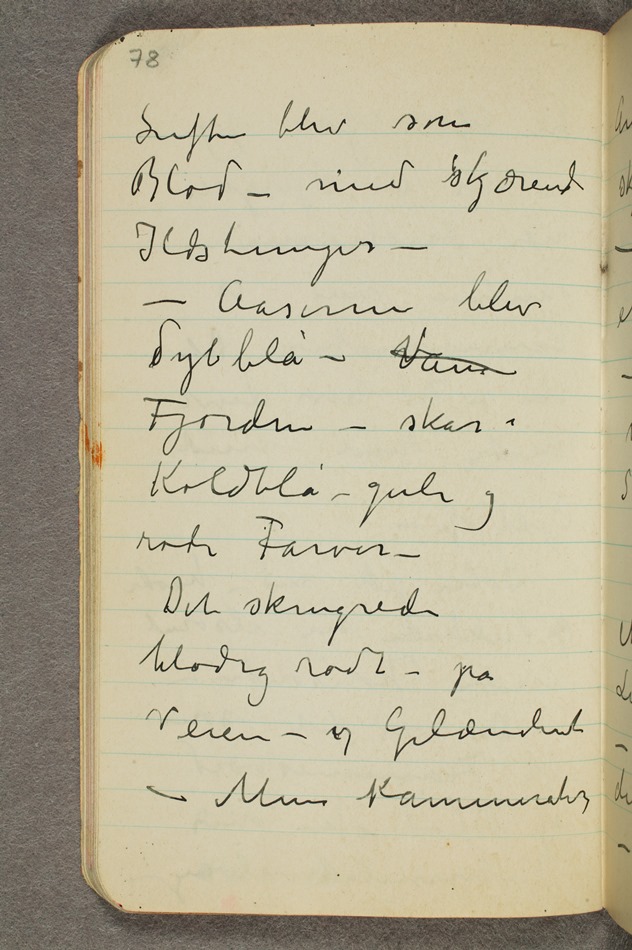 78
Luften blev som
Blod – med skjærende
Ildstrenger –
– Aaserne blev
dybblå –
Fjorden – skar i
Koldblå – gule og
røde Farver –
Det skrngrede
blodig rødt – på
Veien – og Gelænderet
– Mine Kammerater